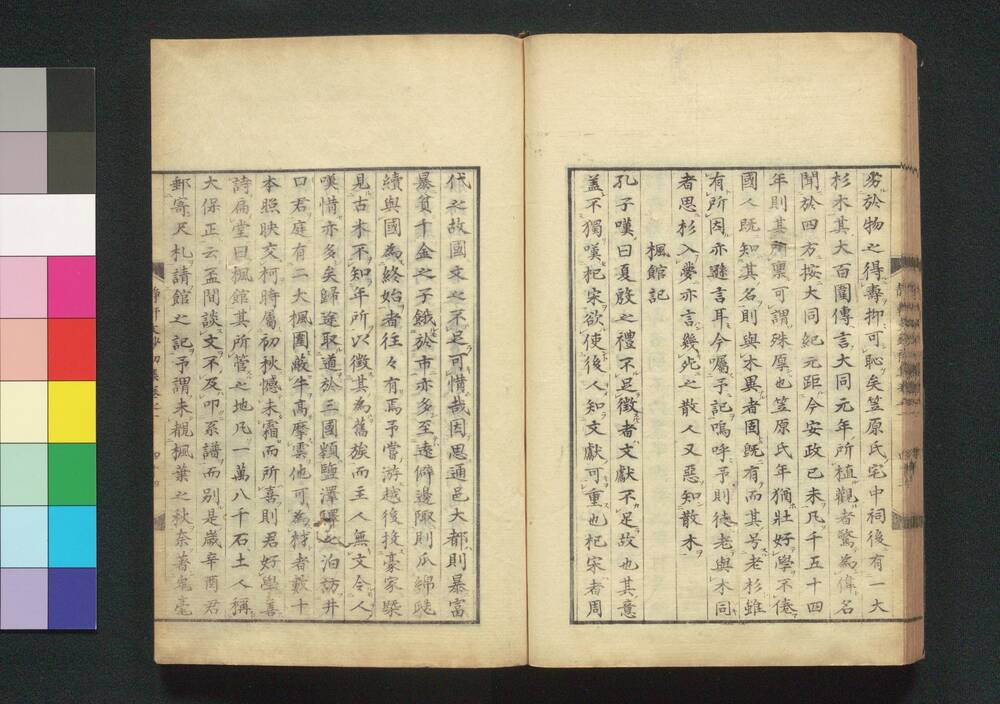 劣於物之得壽抑可恥矣笠原氏宅中祠後有一大
杉木其大百圍傳言大同元年所植觀者驚為偉名
聞於四方按大同紀元距今安政己未凡千五十四
年則其所稟可謂殊厚也笠原氏年猶壯好學不倦
國人既知其名則與木異者固既有而其号老杉雖
有所因亦遜言耳今囑予記嗚呼予則徒老與木同
者思杉入夢亦言幾死之散人又惡知散木
楓館記
孔子嘆曰夏殷之禮不足徵者文獻不足故也其意
蓋不獨嘆杞宋欲使後人知文獻可重也杞宋者周
代之故國文之不足可惜哉因思通邑大都則暴富
暴貧千金之子餓於市亦多至遠僻邊陬則瓜綿瓞
續與國為終始者往々有焉予嘗游越後投豪家槩
見古木不知年所以徵其為舊族而主人無文令人
嘆惜亦多矣歸途取道於三國顆鹽澤驛之泊訪井
口君庭有二大楓圍蔽牛高摩雲他可為材者數十
本照映交柯時屬初秋憾未霜而所喜則君好學善
詩扁堂曰楓館其所管之地凡一萬八千石土人稱
大保正云盃間談文不及叩系譜而別是歲辛酉君
郵寄尺札請館之記予謂未觀楓葉之秋奈著鬼毫